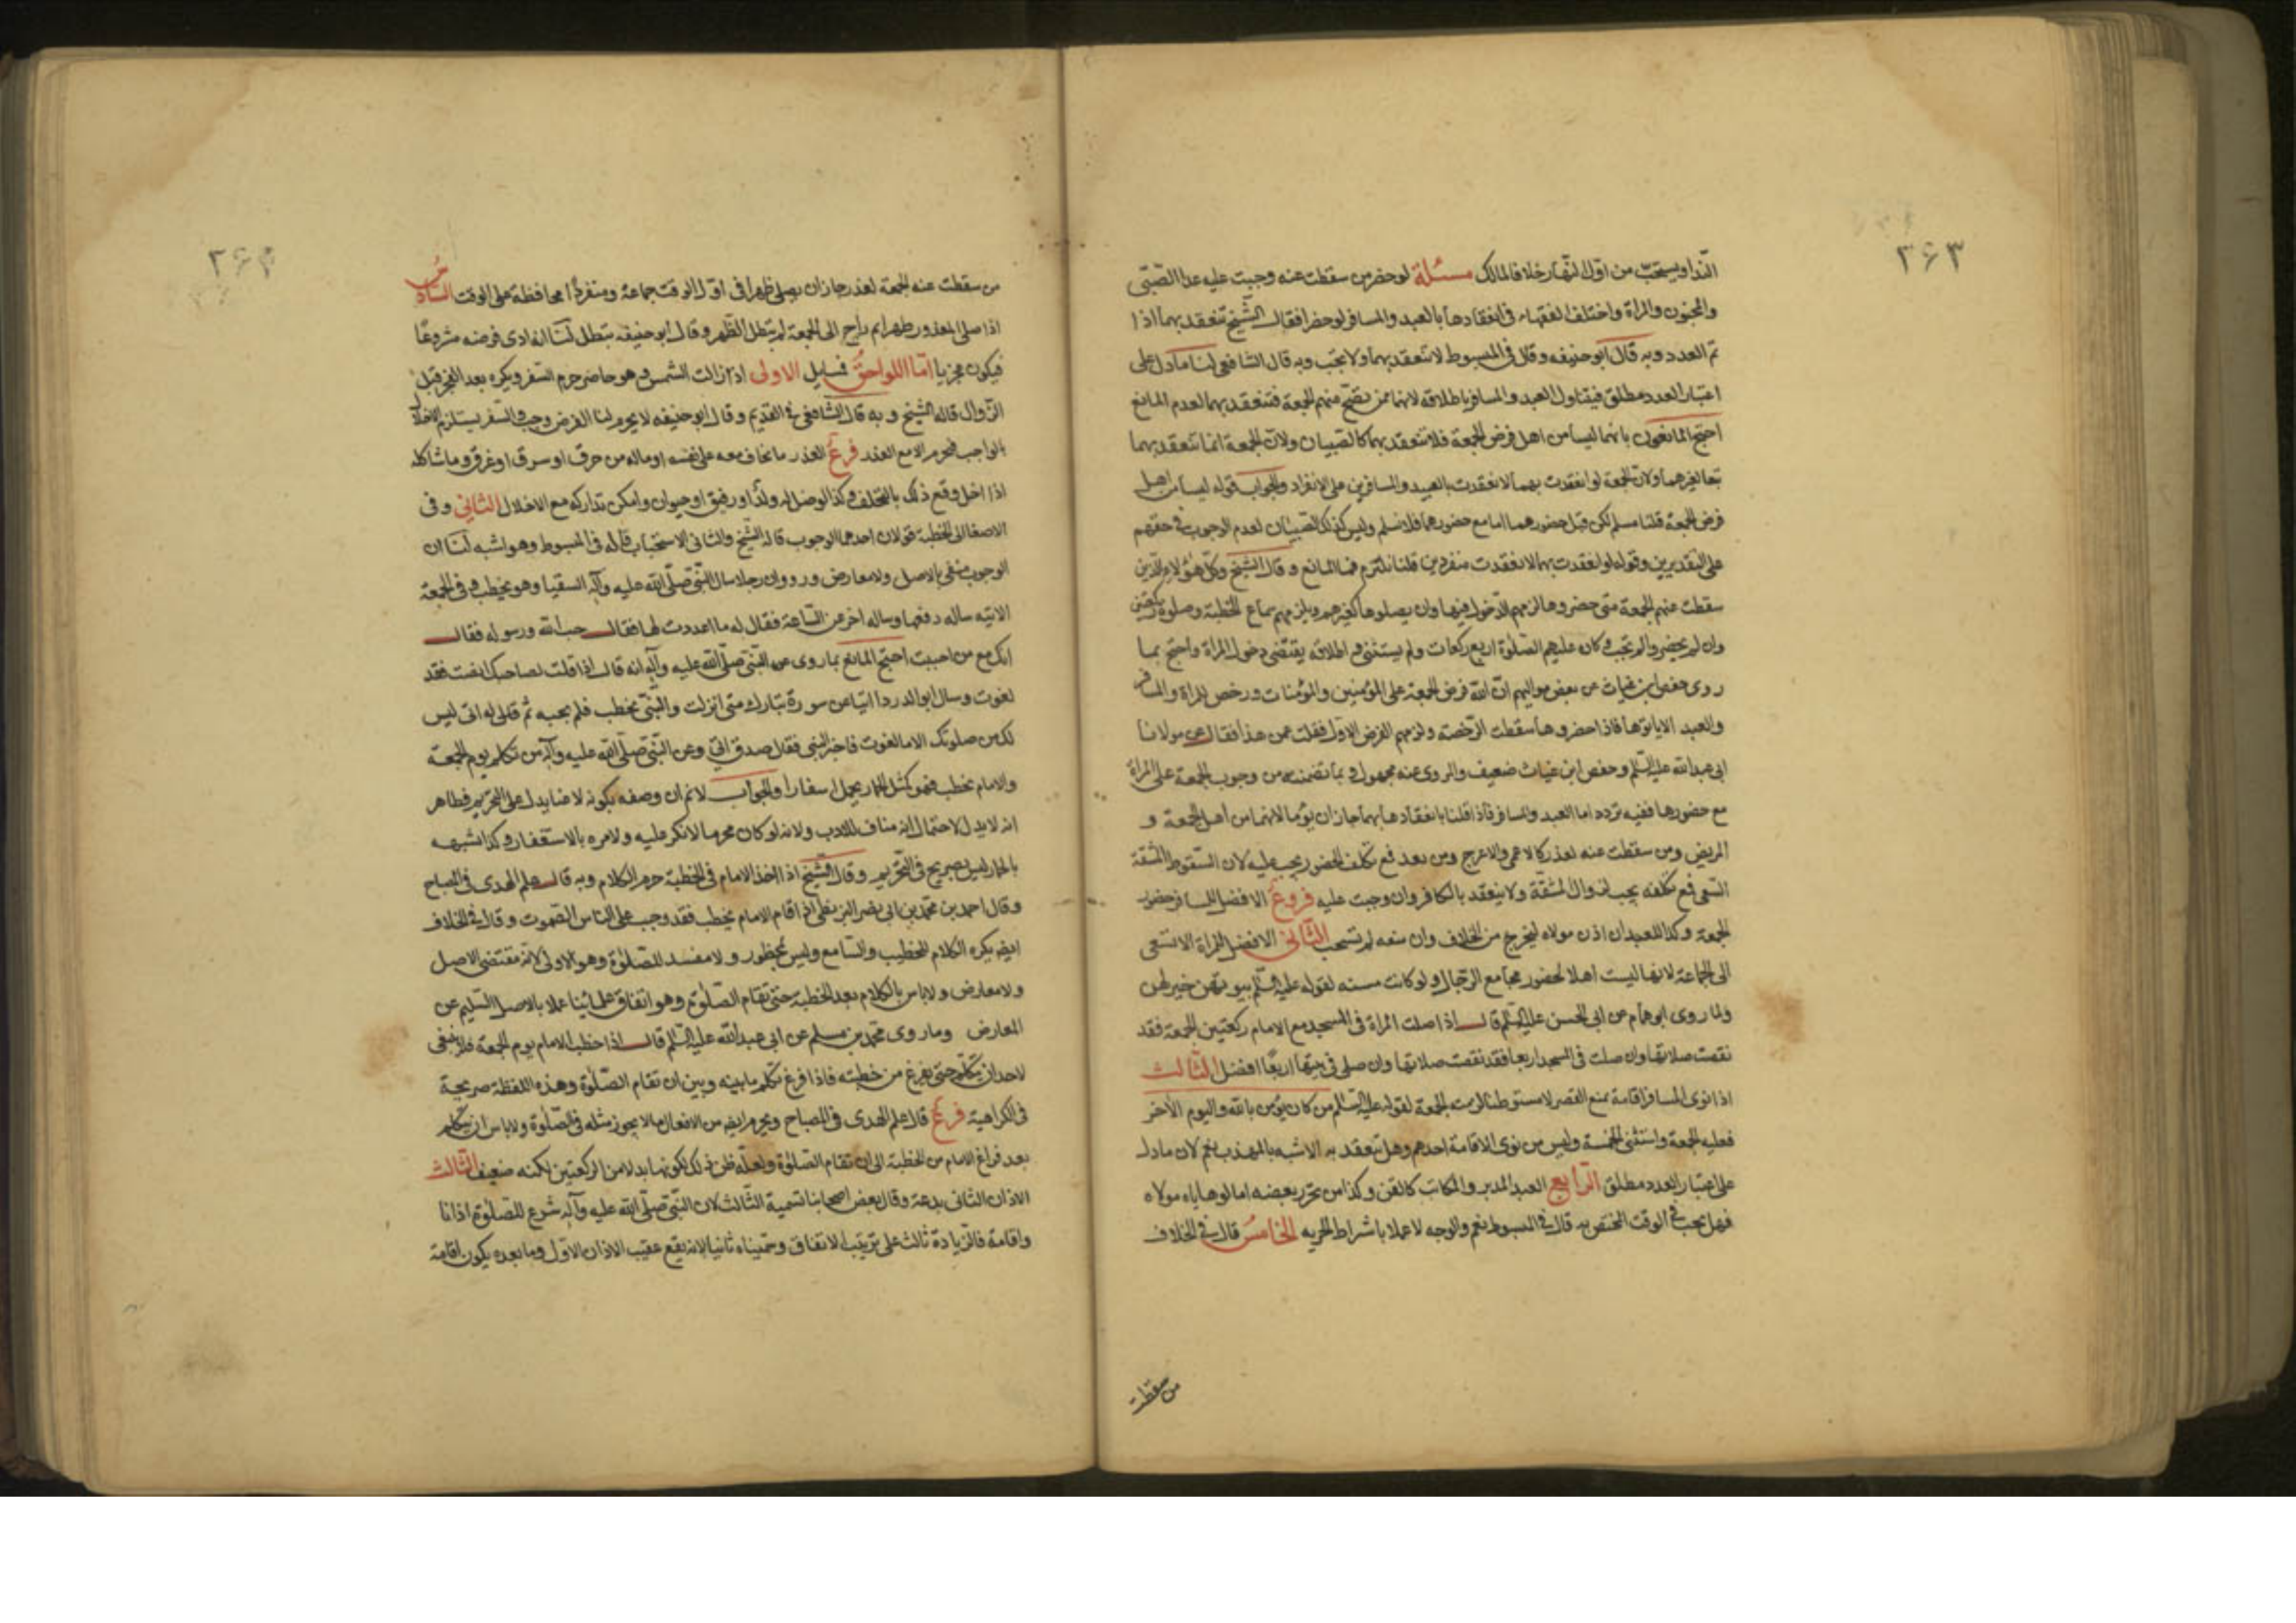 ۳۶۳
النداء ويستحب من اول النهار خلافا لمالك مسئلة لو حضر من سقطت عنه وجبت عليه عدا الصبى
والمجنون والمراة واختلف الفقهاء فى انعقادها بالعبد والمسافر لو حضرا فقال الشيخ تنعقد بهما اذا
تم العدد وبه قال ابو حنيفه وقال فى المبسوط لا تنعقد بهما ولا تجب وبه قال الشافعى لنا ما دل على
اعتبار العدد مطلق فيتناول العبد والمسافر باطلاقه لانهما ممن تصح منهم الجمعة فتنعقد بهما لعدم المانع
احتج المانعون بانهما ليسا من اهل فرض الجمعة فلا تنعقد بهما كالصبيان ولان الجمعة انما تنعقد بهما
تبعا لغيرهما ولان الجمعة لو انعقدت بهما لانعقدت بالعبيد والمسافرين على الانفراد والجواب قوله ليسا من اهل
فرض الجمعة قلنا مسلم لكن قبل حضورهما اما مع حضورهما فلا نسلم وليس كذلك الصبيان لعدم الوجوب فى حقهم
على التقديرين وقوله لو انعقدت بهما لانعقدت منفردين قلنا نلتزم فما المانع وقال الشيخ وكل هؤلاء الذين
سقطت عنهم الجمعة متى حضروها لزمهم الدخول فيها وان يصلوها كغيرهم ويلزمهم سماع الخطبة وصلوة ركعتين
وان لم يحضروا لم تجب وكان عليهم الصلوة اربع ركعات ولم يستثن واطلاقه يقتضى دخول المراة واحتج بما
روى حفص ابن غياث عن بعض مواليهم ان الله فرض الجمعة على المؤمنين والمؤمنات ورخص للمراة والمسافر
والعبد الا ياتوها فاذا حضروها سقطت الرخصة ولزمهم الفرض الاول فقلت عمن هذا فقال عن مولانا
ابى عبد الله عليه السلم وحفص ابن غياث ضعيف والروى عنه مجهول وبما تضمنه من وجوب الجمعة على المراة
مع حضورها ففيه تردد اما العبد والمسافر فاذا قلنا بانعقادها بهما جاز ان يؤما لانهما من اهل الجمعة و
المريض ومن سقطت عنه لعذر كالاعمى والاعرج ومن بعد فمع تكلف الحضور يجب عليه لان السقوط المشقة
السعى فمع تكلفه يجب لزوال المشقة ولا ينعقد بالكافر وان وجبت عليه فروع الافضل للمسافر حضور
الجمعة وكذا للعبد ان اذن مولاه ليخرج من الخلاف وان منعه لم تستحب الثانى الافضل للمراة الا تسعى
الى الجماعة لانها ليست اهلا لحضور مجامع الرجال ولو كانت مسنه لقوله عليه السلم بيوتهن خير لهن
ولما روى ابو همام عن ابى الحسن عليه السلم قال اذا صلت المراة فى المسجد مع الامام ركعتين الجمعة فقد
نقصت صلاتها وان صلت فى المسجد اربعا فقد نقصت صلاتها وان صلى فى بيتها اربعا افضل الثالث
اذا نوى المسافر اقامة تمنع القصر لا مستوطنا لزمته الجمعة لقوله عليه السلم من كان يؤمن بالله واليوم الاخر
فعليه الجمعة واستثنى الخمسة وليس من نوى الاقامة احدهم وهل تنعقد به الاشبه بالمذهب نعم لان ما دل
على اعتبار العدد مطلق الرابع العبد المدبر والمكاتب كالقن وكذا من تحرر بعضه اما لو هاياه مولاه
فهل تجب فى الوقت المختص به قال فى المبسوط نعم والوجه لا عملا باشراط الحريه الخامس قال فى الخلاف
من سقطت
۳۶۴
من سقطت عنه الجمعة لعذر جاز ان يصلى ظهرا فى اول الوقت جماعة ومنفردا محافظة على الوقت السادس
اذا صلى المعذور ظهرا ثم راح الى الجمعة لم يبطل الظهر وقال ابو حنيفه تبطل لنا انه ادى فرضه مشروعا
فيكون مجزيا اما اللواحق فمسايل الاولى اذا زالت الشمس وهو حاضر حرم السفر ويكره بعد الفجر قبل
الزوال قاله الشيخ وبه قال الشافعى فى القديم وقال ابو حنيفه لا يحرم لنا الفرض وجب والسفر يستلزم الاخلال
بالواجب فيحرم الا مع العذر فرع العذر ما يخاف معه على نفسه او ماله من حرق او سرق او غرق وما شاكله
اذا اخل وقع ذلك بالتخلف وكذا لو ضل له ولد او رفيق او حيوان وامكن تداركه مع الاخلال الثانى وفى
الاصغاء الى الخطبة قولان احدهما الوجوب قاله الشيخ والثانى الاستحباب قاله فى المبسوط وهو اشبه لنا ان
الوجوب منفى بالاصل ولا معارض وروو ان رجلا سال النبى صلى الله عليه وآله السقيا وهو يخطب وفى الجمعة
الاتيه ساله رفعها وساله اخر عن الساعة فقال له ما اعددت لها فقال حب الله ورسوله فقال
انك مع من احببت احتج المانع بما روى عن النبى صلى الله عليه وآله انه قال اذا قلت لصاحبك انصت فقد
لغوت وسال ابو الدرداء ابيا عن سورة تبارك متى انزلت والنبى يخطب فلم يجبه ثم قال له ابى ليس
لك من صلوتك الا ما لغوت فاخبر النبى فقال صدق ابى وعن النبى صلى الله عليه وآله من تكلم يوم الجمعة
والامام يخطب فهو كمثل الحمار يحمل اسفارا والجواب لا نم ان وصفه بكونه لاغيا يدل على التحريم فظاهر
انه لا يدل لاحتمال انه مناف للادب ولانه لو كان محرما لانكر عليه ولامره بالاستغفار وكذا تشبيهه
بالحمار ليس بصريح فى التحريم وقال الشيخ اذا اخذ الامام فى الخطبة حرم الكلام وبه قال علم الهدى فى المصباح
وقال احمد بن محمد بن ابى نصر البزنطى اذا قام الامام يخطب فقد وجب على الناس الصموت وقال فى الخلاف
ايضا يكره الكلام للخطيب والسامع وليس بمحظور ولا مفسد للصلوة وهو الاولى لانه مقتضى الاصل
ولا معارض ولا باس بالكلام بعد الخطبة حتى تقام الصلوة وهو اتفاق علمائنا عملا بالاصل السليم عن
المعارض وما روى محمد بن مسلم عن ابى عبد الله عليه السلم قال اذا خطب الامام يوم الجمعة فلا ينبغى
لاحد ان يتكلم حتى يفرغ من خطبته فاذا فرغ تكلم ما بينه وبين ان تقام الصلوة وهذه اللفظة صريحة
فى الكراهية فرع قال علم الهدى فى المصباح ويحرم ايضا من الافعال ما لا يجوز مثله فى الصلوة ولا باس ان يتكلم
بعد فراغ الامام من الخطبة الى ان تقام الصلوة ولعله ظن ذلك لكونها بدلا من الركعتين لكنه ضعيف الثالث
الاذان الثانى بدعة وقال بعض اصحابنا تسمية الثالث لان النبى صلى الله عليه وآله شرع للصلوة اذانا
واقامة فالزيادة ثالث على ترتيب الاتفاق وسميناه ثانيا لانه يقع عقيب الاذان الاول وما بعده يكون اقامة